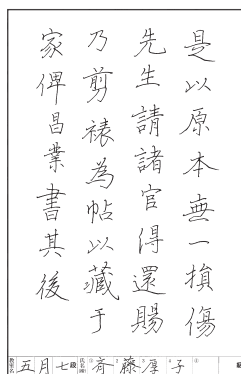 是以原本無一損傷
先生請諸官得還賜
乃剪裱為帖以藏于
家俾昌業書其後
五月 七段 斉藤厚子